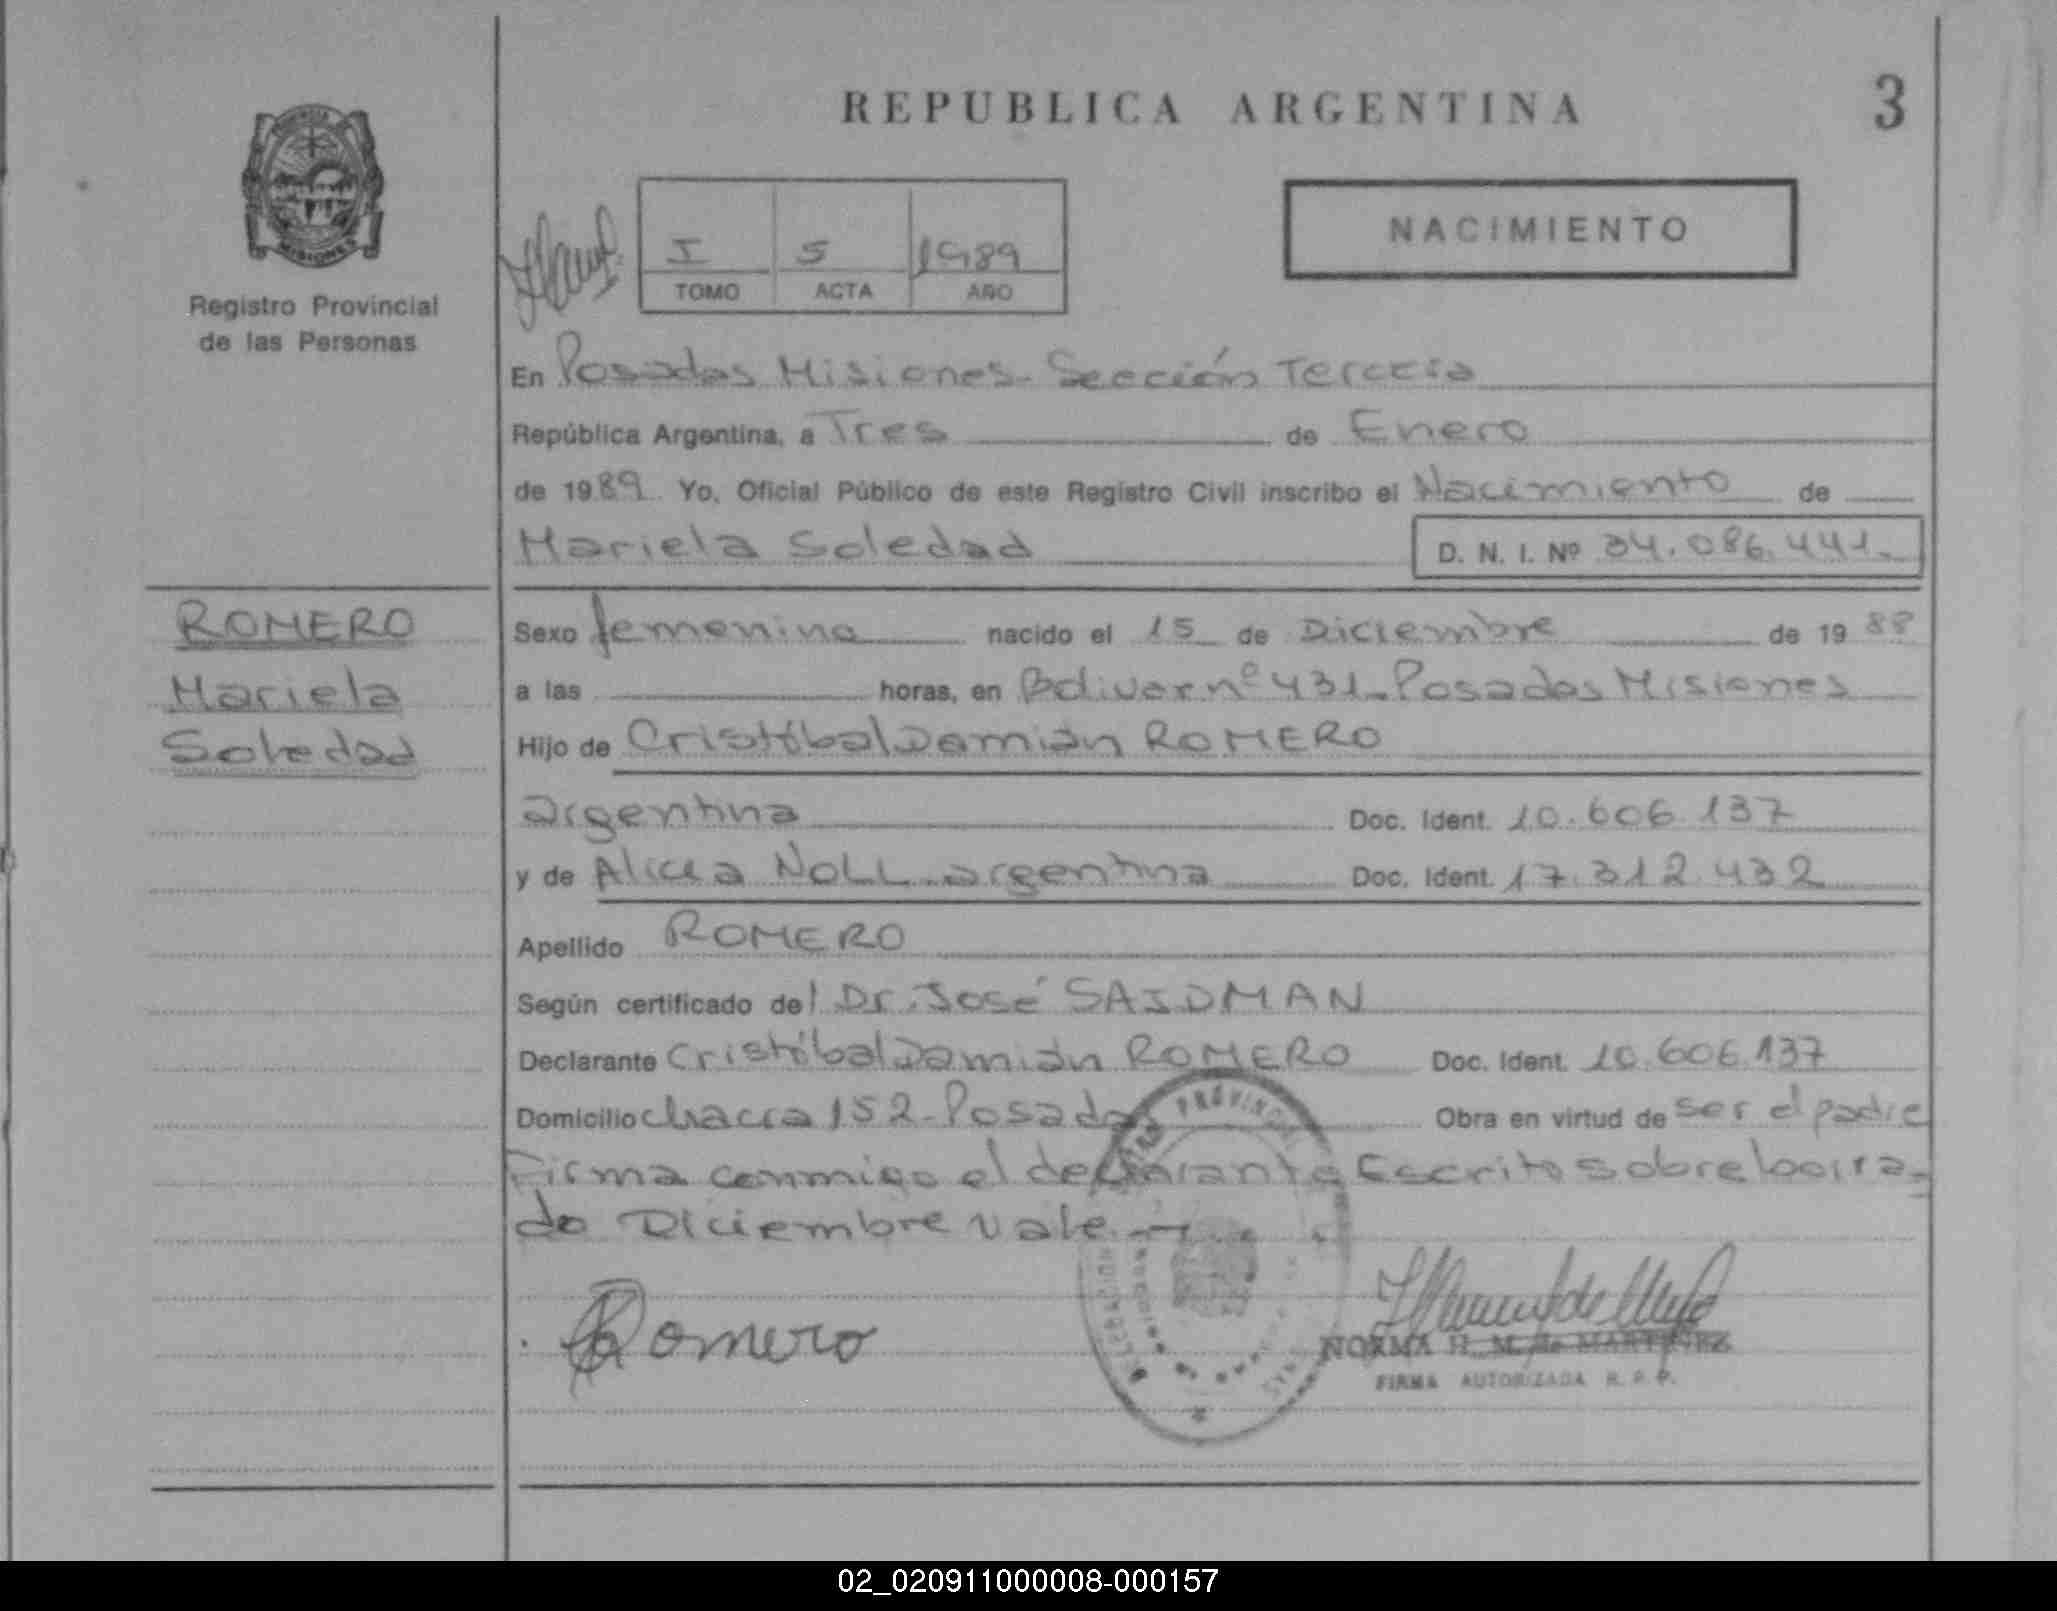 REPUBLICA ARGENTINA
3
NACIMIENTO
I 5 1989
TOMO ACTA AÑO
MISIONES
Registro Provincial
de las Personas
En Posadas Misiones - Sección Tercera
República Argentina, a Tres de Enero
de 1989 Yo, Oficial Público de este Registro Civil inscribo el Nacimiento de
Mariela Soledad D. N. I. Nº 34.086.441.
ROMERO
Mariela
Soledad
Sexo femenino nacido el 15 de Diciembre de 19 88
a las horas, en Bolivar nº 431 - Posadas Misiones
Hijo de Cristóbal Damián ROMERO
argentina Doc. Ident. 10.606.137
y de Alicia NOLL argentina Doc. Ident. 17.312.432
Apellido ROMERO
Según certificado del Dr. José SAIDMAN
Declarante Cristóbal Damián ROMERO Doc. Ident. 10.606.137
Domicilio chacra 152 - Posadas Obra en virtud de ser el padre
Firma conmigo el declarante Escrito sobre borra-
do Diciembre vale.-
Romero
PROVINCIAL
NORMA H. M. de MARTINEZ
FIRMA AUTORIZADA R. P. P.
02_020911000008-000157